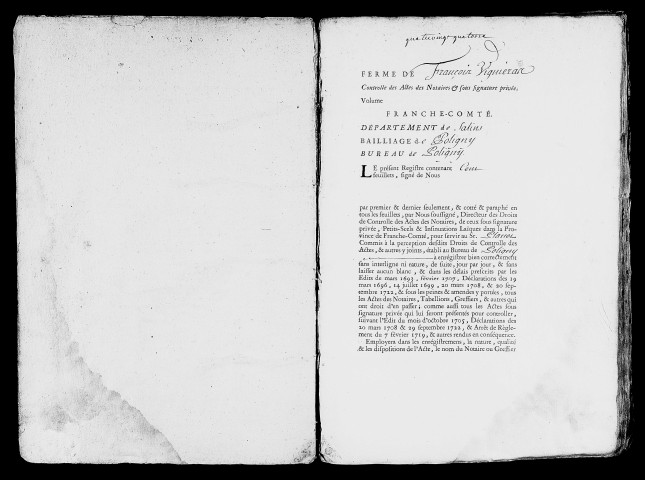 quatrevingt quatorze
FERME DE François Viguieran
Controlle des Actes des Notaires & sous signature privée,
Volume
FRANCHE-COMTÉ.
DÉPARTEMENT de Salins
BAILLIAGE de Poligny
BUREAU de Poligny
LE présent Registre contenant Cent
feuillets, signé de Nous
par premier & dernier seulement, & cotté & paraphé en
tous les feuillets, par Nous soussigné, Directeur des Droits
de Controlle des Actes des Notaires, de ceux sous signature
privée, Petits-Scels & Insinuations Laïques dans la Pro-
vince de Franche-Comté, pour servir au Sr.
Commis à la perception desdits Droits de Controlle des
Actes, & autres y joints, établi au Bureau de Poligny
à enrégistrer bien correctement
sans interligne ni rature, de suite, jour par jour, & sans
laisser aucun blanc, & dans les délais prescrits par les
Edits de mars 1693, février 1707, Déclarations des 19
mars 1696, 14 juillet 1699, 20 mars 1708, & 20 sep-
tembre 1722, & sous les peines & amendes y portées, tous
les Actes des Notaires, Tabellions, Greffiers, & autres qui
ont droit d'en passer, comme aussi tous les Actes sous
signature privée qui lui seront présentés pour controller,
suivant l'Edit du mois d'octobre 1705, Déclarations des
20 mars 1708 & 29 septembre 1722, & Arrêt de Régle-
ment du 7 février 1719, & autres rendus en conséquence.
Employera dans les enrégistremens, la nature, qualité
& les dispositions de l'Acte, le nom du Notaire ou Greffier